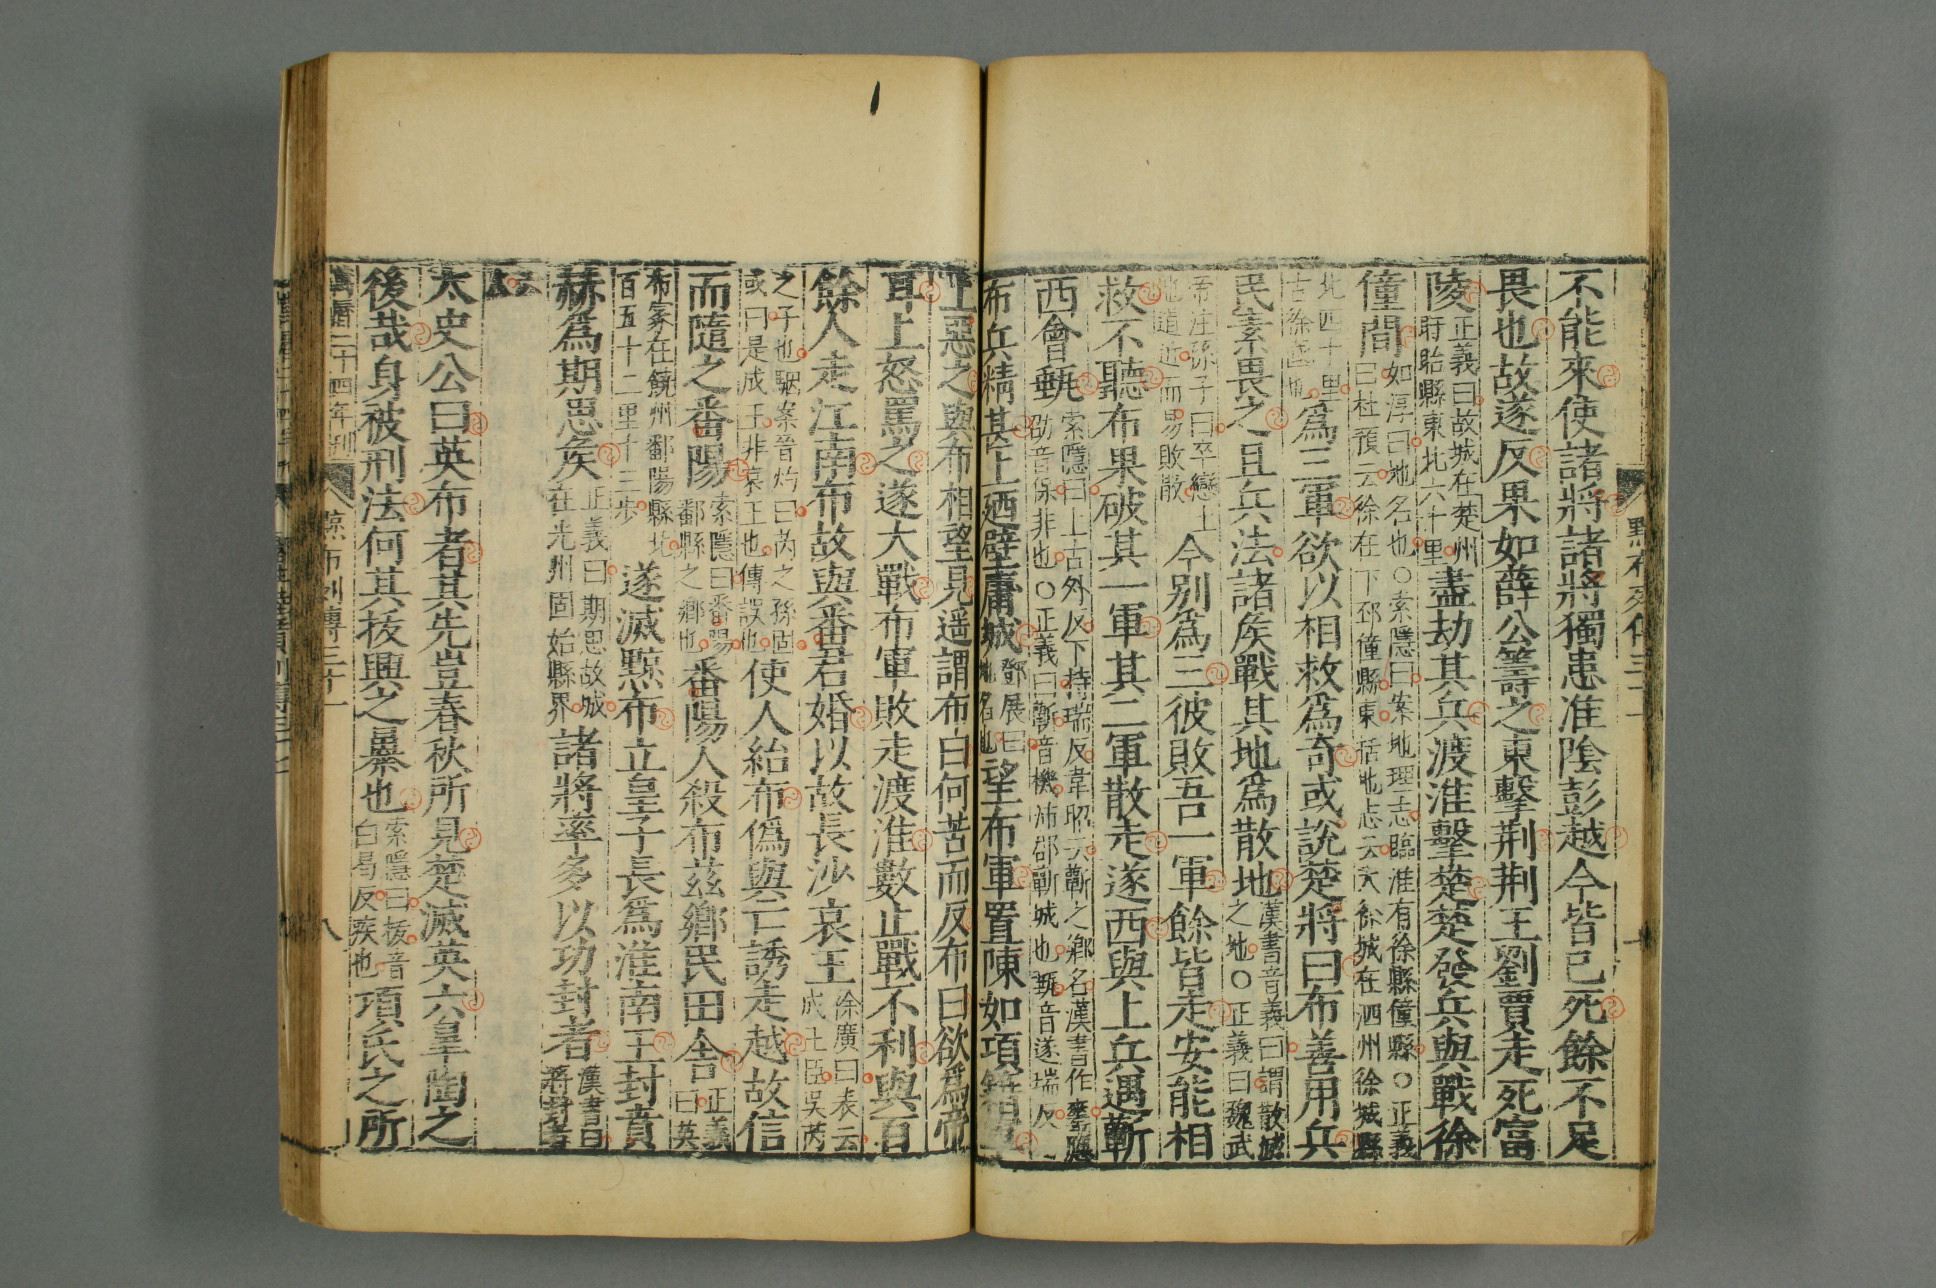 不能來使諸將諸將獨患淮陰彭越今皆已死餘不足
畏也故遂反果如薛公籌之東擊荆荆王劉賈走死富
陵正義曰故城在楚州盱眙縣東北六十里盡劫其兵渡淮擊楚楚發兵與戰徐
僮間如淳曰地名也○索隱曰案地理志臨淮有徐縣僮縣○正義曰杜預云徐在下邳僮縣東括地志云大徐城在泗州徐城縣
北四十里古徐國也爲三軍欲以相救爲奇或說楚將曰布善用兵
民素畏之且兵法諸侯戰其地爲散地漢書音義曰謂散滅之地○正義曰魏武
帝注孫子曰卒戀土地道近而易敗散今別爲三彼敗吾一軍餘皆走安能相
救不聽布果破其一軍其二軍散走遂西與上兵遇蘄
西會甀索隱曰上古外反下持瑞反韋昭云蘄之鄉名漢書作𦈨應劭音保非也○正義曰蘄音機沛郡蘄城也甀音遂瑞反
布兵精甚上廼壁庸城鄧展曰地名也望布軍置陳如項籍軍
上惡之與布相望見遥謂布曰何苦而反布曰欲爲帝
耳上怒罵之遂大戰布軍敗走渡淮數止戰不利與百
餘人走江南布故與番君婚以故長沙哀王徐廣曰表云成王臣吳芮
之子也駰案晉灼曰芮之孫固或曰是成王非哀王也傳誤也使人紿布僞與亡誘走越故信
而隨之番陽索隱曰番陽鄱縣之鄉也番陽人殺布茲鄉民田舍正義曰英
布冢在饒州鄱陽縣北百五十二里十三步遂滅黥布立皇子長爲淮南王封賁
赫爲期思侯正義曰期思故城在光州固始縣界諸將率多以功封者漢書曰將封者六
人
太史公曰英布者其先豈春秋所見楚滅英六皋陶之
後哉身被刑法何其拔興之暴也索隱曰拔音白曷反疾也項氏之所
萬曆二十四年刊
黥布列傳三十一
八